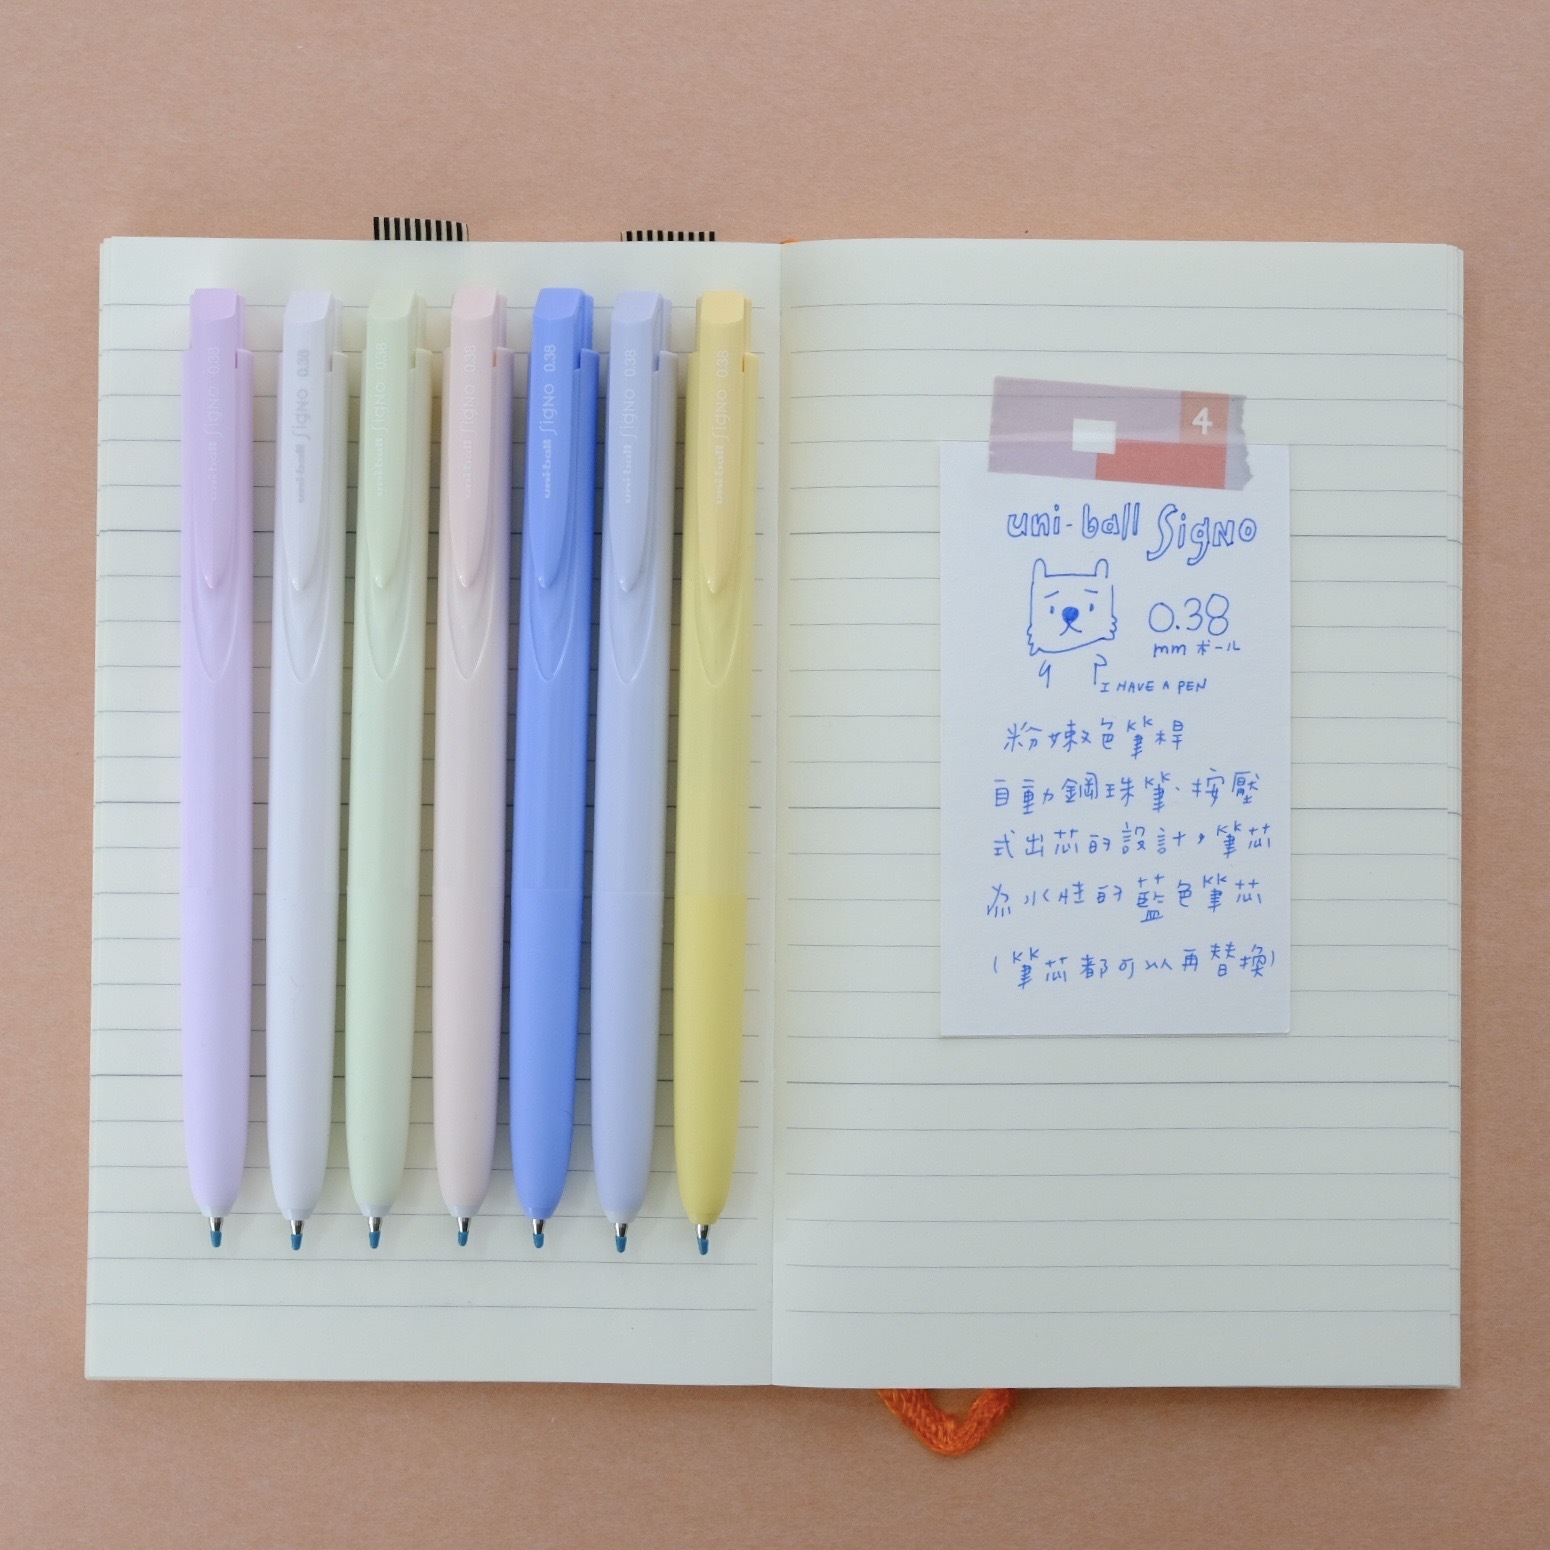 uni-ball Signo 0.38
uni-ball Signo 0.38
uni-ball Signo 0.38
uni-ball Signo 0.38
uni-ball Signo 0.38
uni-ball Signo 0.38
uni-ball Signo 0.38
4
uni-ball Signo
0.38
mm ボール
I HAVE A PEN
粉嫩色筆桿
自動鋼珠筆、按壓
式出芯的設計，筆芯
為水性的藍色筆芯
(筆芯都可以再替換)